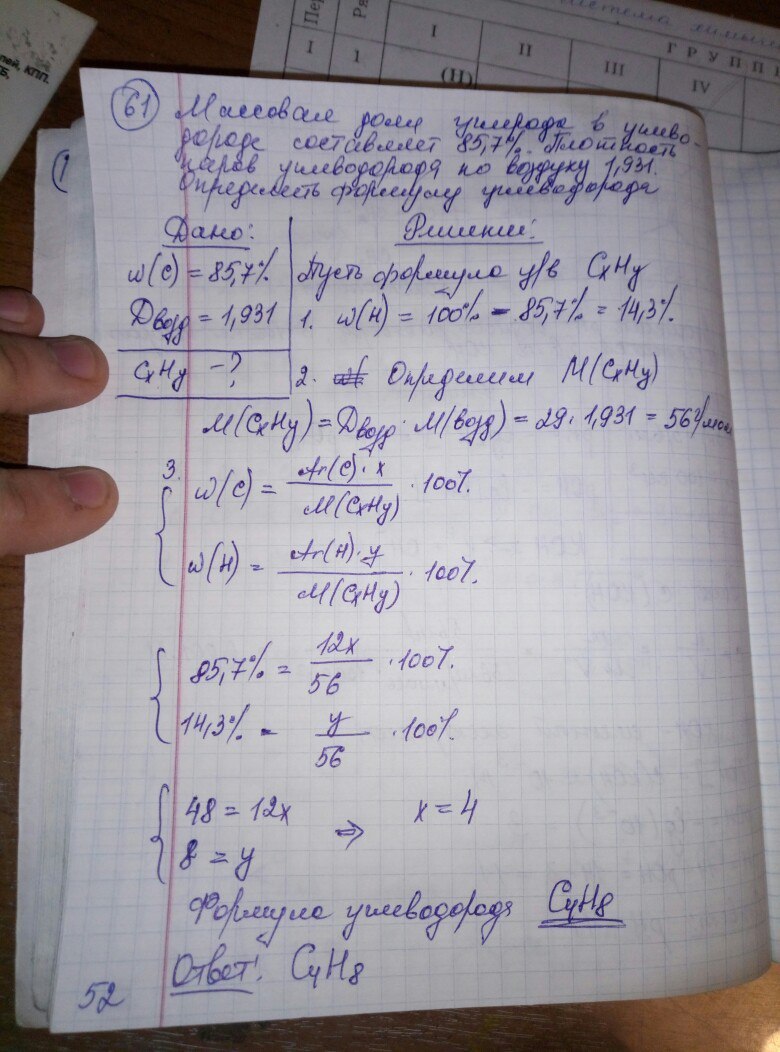 система химич
ГРУПП
Пер
Ря
I
II
III
IV
I
1
(H)
лей, КПП.
61 Массовая доля углерода в углево-
дороде составляет 85,7%. Плотность
паров углеводорода по воздуху 1,931.
Определить формулу углеводорода
Дано:
Решение:
w(C) = 85,7%
Пусть формула у/в CxHy
Dвозд = 1,931
1. w(H) = 100% - 85,7% = 14,3%
CxHy - ?
2. Определим M(CxHy)
M(CxHy) = Dвозд · M(возд) = 29 · 1,931 = 56 г/моль
3. w(C) = Ar(C) · x / M(CxHy) · 100%
w(H) = Ar(H) · y / M(CxHy) · 100%
85,7% = 12x / 56 · 100%
14,3% = y / 56 · 100%
48 = 12x ⇒ x = 4
8 = y
Формула углеводорода C4H8
Ответ: C4H8
52